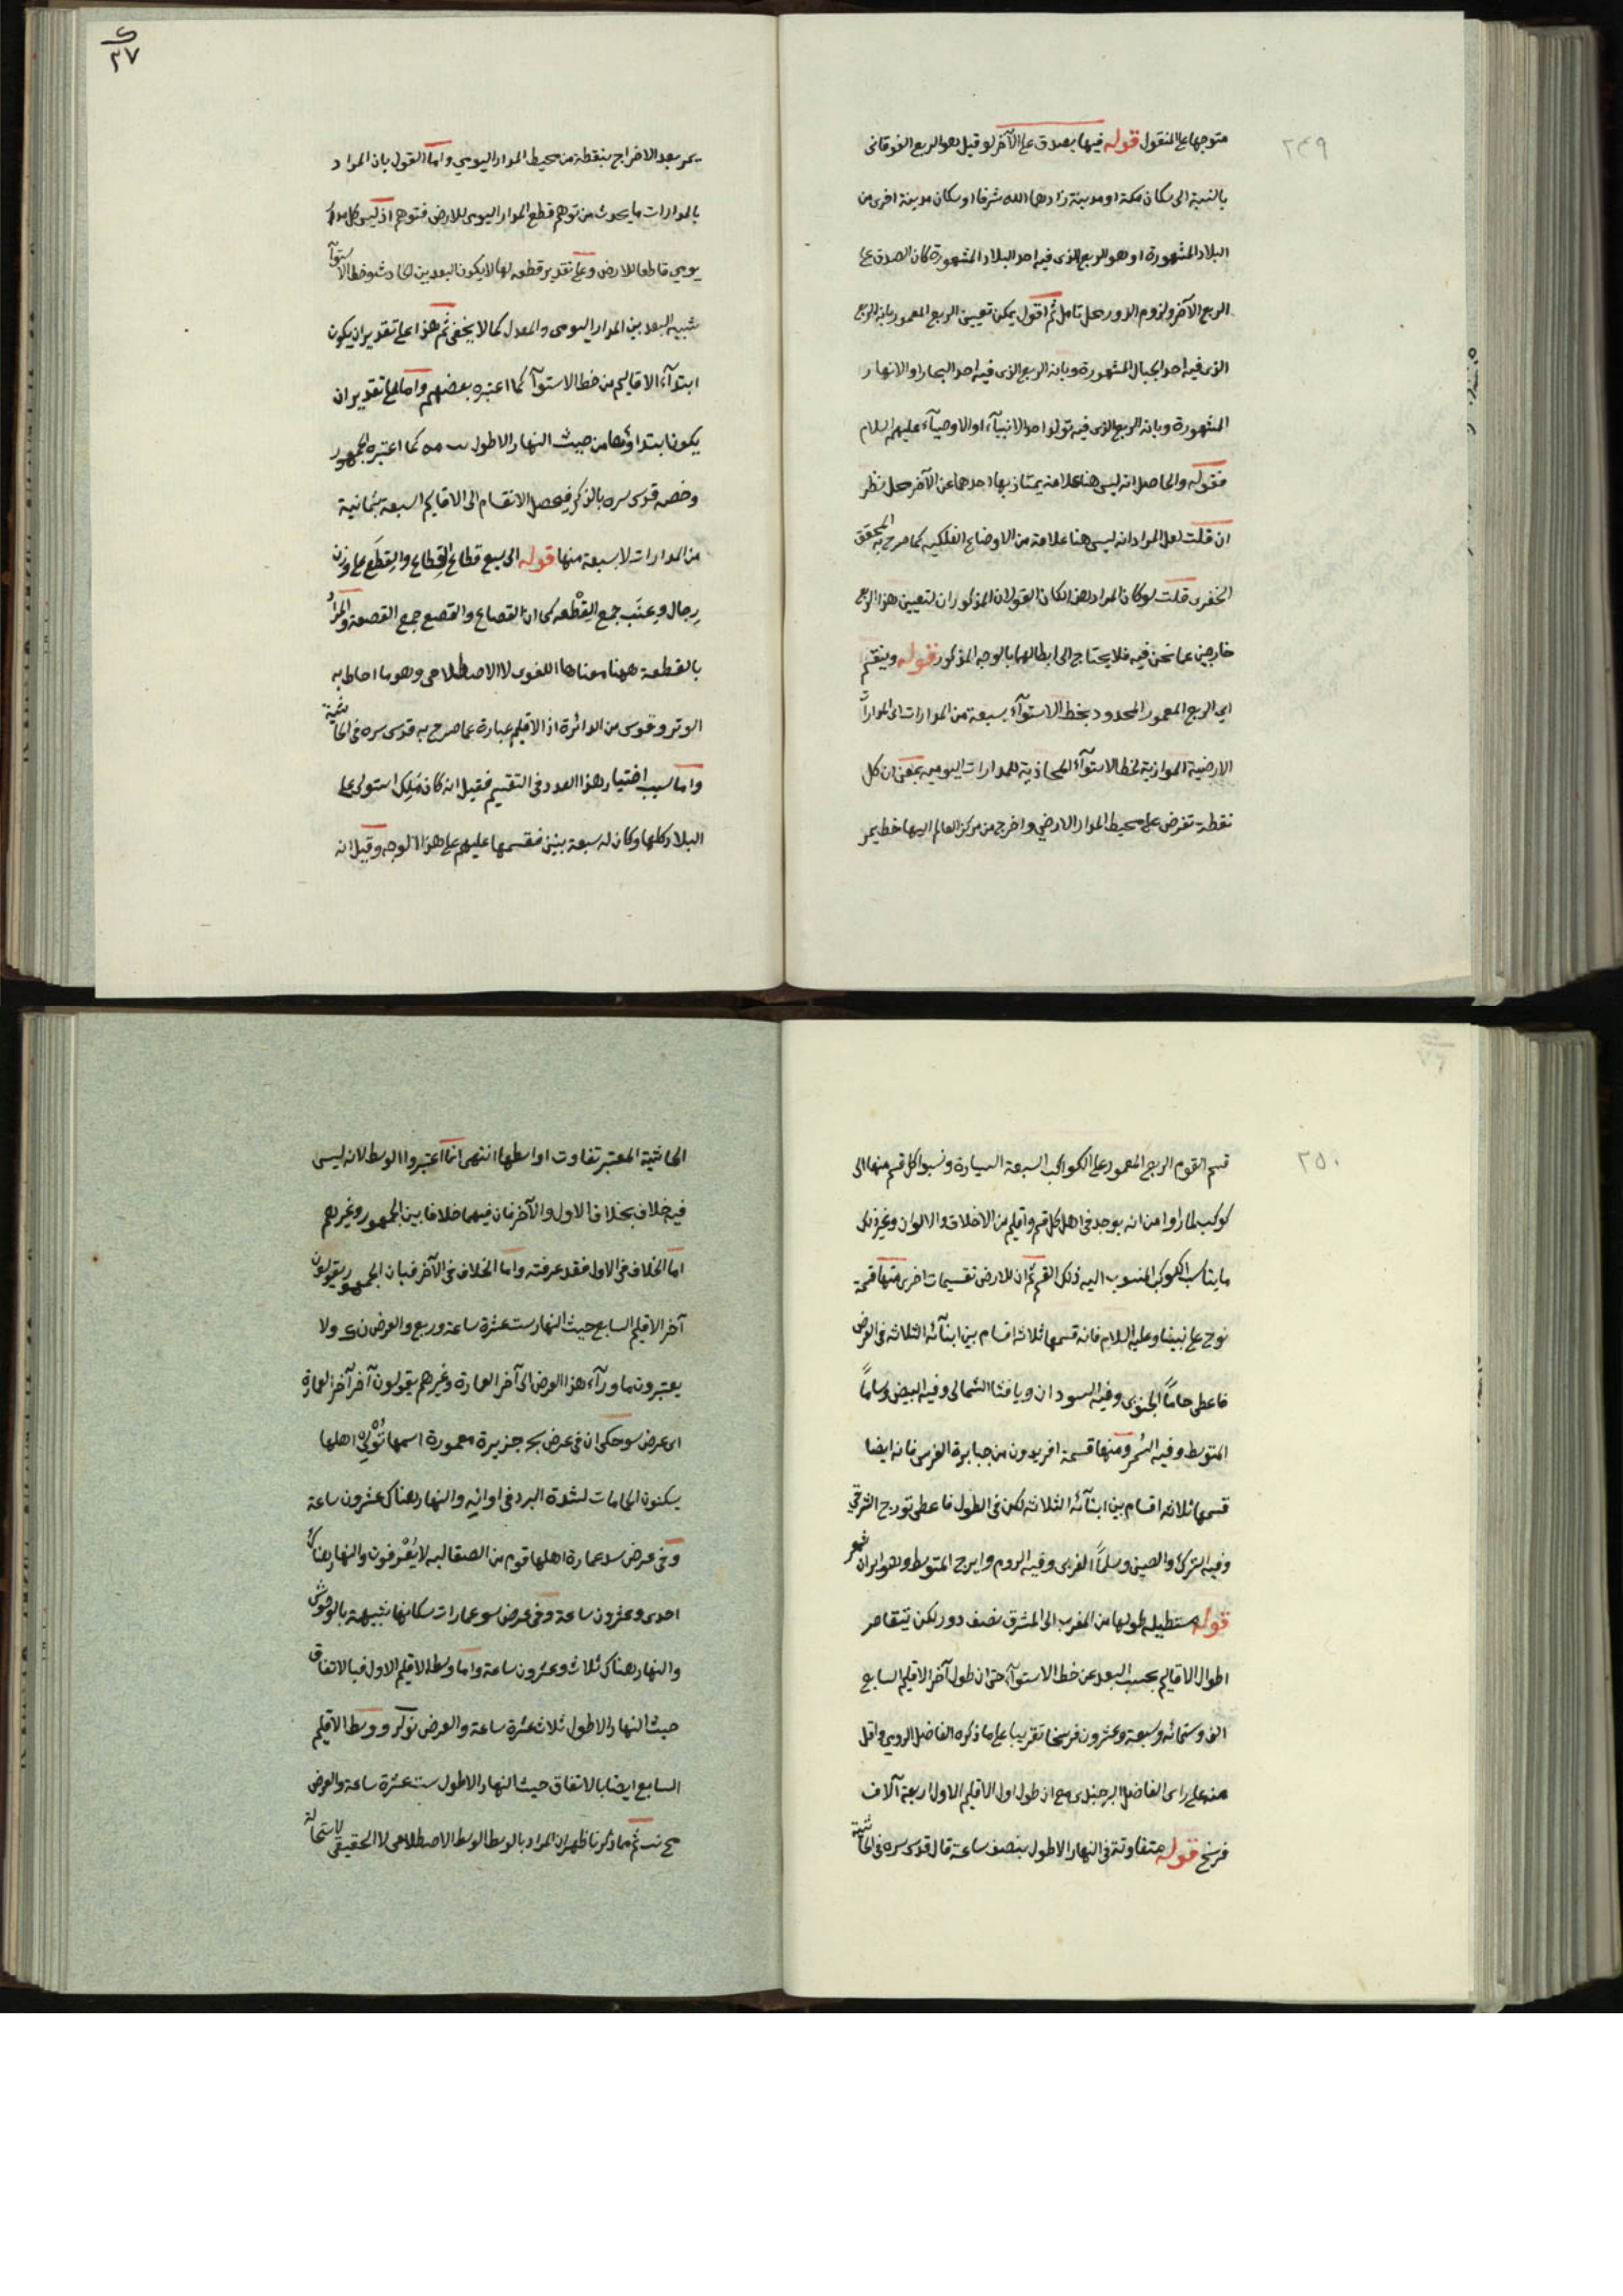 ٢٤٩
متوجها على المنقول قوله فيها يصدق على الآخر لو قيل هو الربع الفوقانى
بالنسبة الى سكان مكة او مدينة زادهما الله شرفا او سكان مدينة اخرى من
البلاد المشهورة او هو الربع الذى فيه احد البلاد المشهورة كان الصدق على
الربع الآخر ولزوم الدور محل تامل ثم اقول يمكن تعيين الربع المعمور بانه الربع
الذى فيه احد الجبال المشهورة وبانه الربع الذى فيه احد البحار او الانهار
المشهورة وبانه الربع الذى فيه تولد احد الانبيآء او الاوصيآء عليهم السلام
فقوله والحاصل انه ليس هنا علامة يمتاز بها احدهما عن الآخر محل نظر
ان قلت لعل المراد انه ليس هنا علامة من الاوضاع الفلكيه كما صرح به المحقق
الخفرى قلت لو كان المراد هذا لكان القولان المذكوران لتعيين هذا الربع
خارجين عما نحن فيه فلا يحتاج الى ابطالهما بالوجه المذكور قوله وينقسم
اى الربع المعمور المحدود بخط الاستوآء بسبعة من المدارات اى المدارات
الارضية الموازية لخط الاستوآء المحاذية للمدارات اليومية بمعنى ان كل
نقطة تفرض على محيط المدار الارضي واخرج من مركز العالم اليها خط يمر
٢٧
يمر بعد الاخراج بنقطة من محيط المدار اليومي واما القول بان المراد
بالمدارات ما يحدث من توهم قطع المدار اليومى للارض فتوهم اذ ليس كل مدار
يومي قاطعا للارض وعلى تقدير قطعه لها لا يكون البعد بين الحادث وخط الاستوآ
شبيه البعد بين المدار اليومى والمعدل كما لا يخفى ثم هذا على تقدير ان يكون
ابتدآء الاقاليم من خط الاستوآ كما اعتبره بعضهم واما على تقدير ان
يكون ابتداؤها من حيث النهار الاطول كما اعتبره الجمهور
وخصه قدس سره بالذكر فيحصل الانقسام الى الاقاليم السبعة بثمانية
من المدارات لا بسبعة منها قوله الى سبع قطاع القِطاع والقِطَع على وزن
رِجال وعِنَب جمع القِطْعه كما ان القصاع والقصع جمع القصعة والمراد
بالقطعة ههنا معناها اللغوى لا الاصطلاحى وهو ما احاط به
الوتر وقوس من الدائرة اذ الاقليم عبارة عما صرح به قدس سره فى الحاشية
واما سبب اختيار هذا العدد فى التقسيم فقيل انه كان مَلِك استولى على
البلاد كلها وكان له سبعة بنين فقسمها عليهم على هذا الوجه وقيل انه
٢٥٠
قسم القوم الربع المعمور على الكواكب السبعة السيارة ونسبوا كل قسم منها الى
كوكب لما راوا من انه يوجد فى اهل كل قسم واقليم من الاخلاق والالوان وغير ذلك
ما يناسب الكوكب المنسوب اليه ذلك القسم ثم ان للارض تقسيمات اخرى منها قسمة
نوح على نبينا وعليه السلام فانه قسمها ثلاثة اقسام بين ابنآئه الثلاثه فى العرض
فاعطى حاماً الجنوبى وفيه السودان ويافثا الشمالى وفيه البيض وساماً
المتوسط وفيه السُمر ومنها قسمة افريدون من جبابرة الفرس فانه ايضا
قسمها ثلاثة اقسام بين ابنآئه الثلاثه لكن فى الطول فاعطى تورج الشرقي
وفيه الترك والصين وسلماً الغربى وفيه الروم وايرج المتوسط وهو ايران شهر
قوله مستطيلة طولها من المغرب الى المشرق نصف دور لكن يتقاصر
اطوال الاقاليم بحسب البعد عن خط الاستوآء حتى ان طول آخر الاقليم السابع
الف وستمائه وسبعة وعشرون فرسخا تقريبا على ما ذكره الفاضل الرومي واقل
منه على راى الفاضل البرجندى مع ان طول اول الاقليم الاول اربعة آلاف
فرسخ قوله متفاوتة فى النهار الاطول بنصف ساعة قال قدس سره فى الحاشية
الحاشية المعتبر تفاوت اواسطها انتهى انما اعتبروا الوسط لانه ليس
فيه خلاف بخلاف الاول والآخر فان فيهما خلافا بين الجمهور وغيرهم
اما الخلاف فى الاول فقد عرفته واما الخلاف فى الآخر فبان الجمهور يقولون
آخر الاقليم السابع حيث النهار ست عشرة ساعة وربع والعرض ولا
يعتبرون ما ورآء هذا العرض الى آخر العمارة وغيرهم يقولون آخر آخر العمارة
اى عرض سو حكى ان فى عرض سج جزيرة معمورة اسمها تُولى اهلها
يسكنون الحمامات لشدة البرد فى اوانه والنهار هناك عشرون ساعة
وفى عرض سد عمارة اهلها قوم من الصقالبه لا يُعْرفون والنهار هناك
احدى وعشرون ساعة وفى عرض سو عمارات سكانها شبيهة بالوحوش
والنهار هناك ثلاث وعشرون ساعة واما وسط الاقليم الاول فبالاتفاق
حيث النهار الاطول ثلاث عشرة ساعة والعرض ووسط الاقليم
السابع ايضا بالاتفاق حيث النهار الاطول ست عشرة ساعة والعرض
ثم مما ذكرنا ظهر ان المراد بالوسط الوسط الاصطلاحى لا الحقيقى لاستحالة